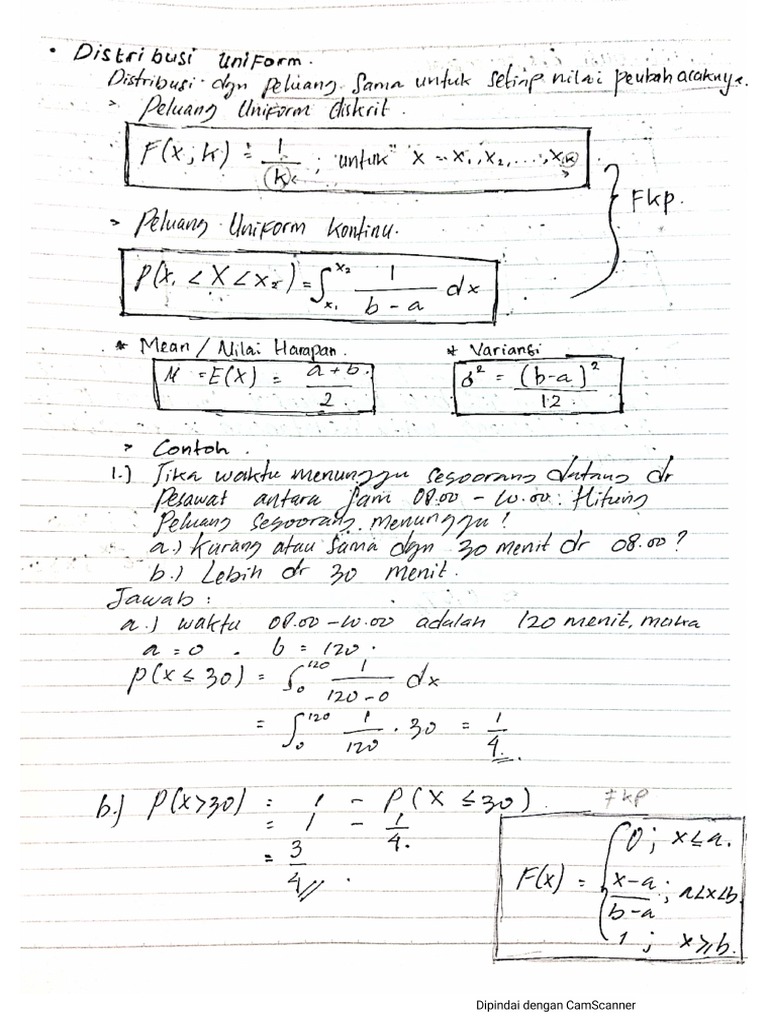 • Distribusi Uniform.
Distribusi dgn peluang sama untuk setiap nilai peubah acaknya.
> Peluang Uniform diskrit.
F(x; k) = 1/k ; untuk x = x₁, x₂, ..., xₖ
} Fkp.
> Peluang Uniform kontinu.
P(x₁ < X < x₂) = ∫ₓ₁ˣ² 1/(b - a) dx
* Mean / Nilai Harapan. * Variansi
M = E(X) = (a + b)/2 σ² = (b-a)²/12
> Contoh.
1.) Jika waktu menunggu seseorang datang dr
pesawat antara jam 08.00 - 10.00. Hitung
Peluang seseorang menunggu!
a.) Kurang atau sama dgn 30 menit dr 08.00?
b.) Lebih dr 30 menit.
Jawab :
a.) waktu 08.00 - 10.00 adalah 120 menit, maka
a = 0 . b = 120.
P(x ≤ 30) = ∫₀¹²⁰ 1/(120-0) dx
= ∫₀¹²⁰ 1/120 . 30 = 1/4
b.) P(x>30) = 1 - P(X ≤ 30)
= 1 - 1/4.
= 3/4 //.
Fkp
F(x) = { 0 ; x ≤ a.
(x-a)/(b-a) ; a<x<b
1 ; x ≥ b.
Dipindai dengan CamScanner